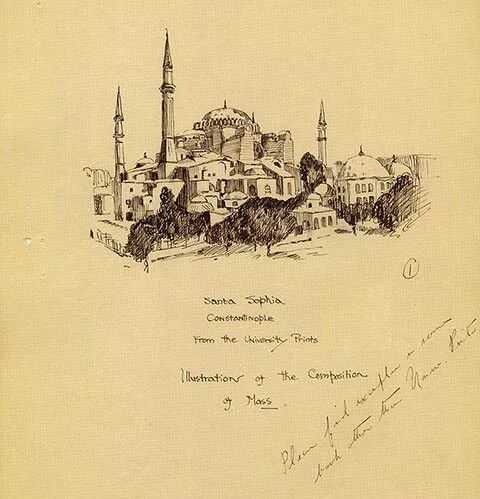 ①
Santa Sophia
Constantinople
From the University Prints
Illustration of the Composition
of Mass.
Please find examples in some
book other than Univ. Prints